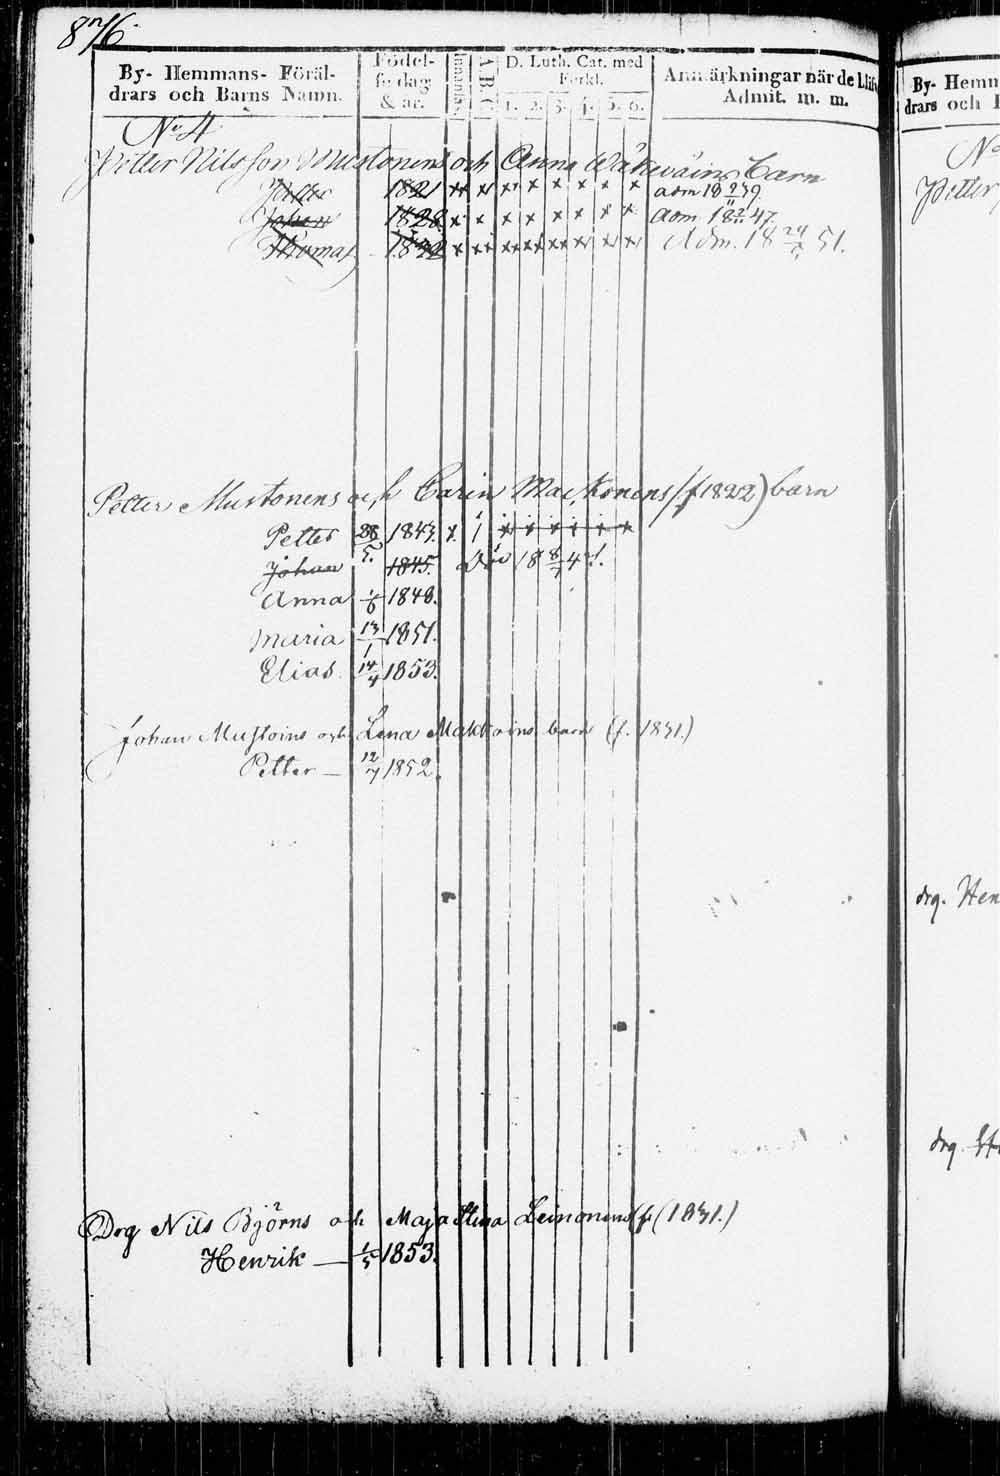 876.
By- Hemmans- Föräl-
drars och Barns Namn.
Födel-
sedag
& år.
Innanläs.
A B C
D. Luth. Cat. med
Förkl.
1. 2. 3. 4. 5. 6.
Anmärkningar när de blifv
Admit. m. m.
No 4
Petter Nilsson Mustonens och Anna Barn
Petter 1821 x x x x x x x x adm 18 39.
Johan 1828 x x x x x x x x adm. 18 47.
Thomas 1832 x x x x x x x x Adm. 18 51.
Petter Mustonens och Carin Maskonens (f 1822) barn
Petter 28/5. 1847. x 1 x x x x x x
Johan 1845. Död 18 8/7 4
Anna 1/6 1848.
Maria 13/1 1851.
Elias 14/4 1853.
Johan Mustoins och Lena barn (f. 1831.)
Petter — 12/7 1852.
Drg Nils Björns och Maja Stina Leinonens (f. (1831.)
Henrik — 1/5 1853.
By- Hemm
drars och
No
Petter
drg. Hen
drg.